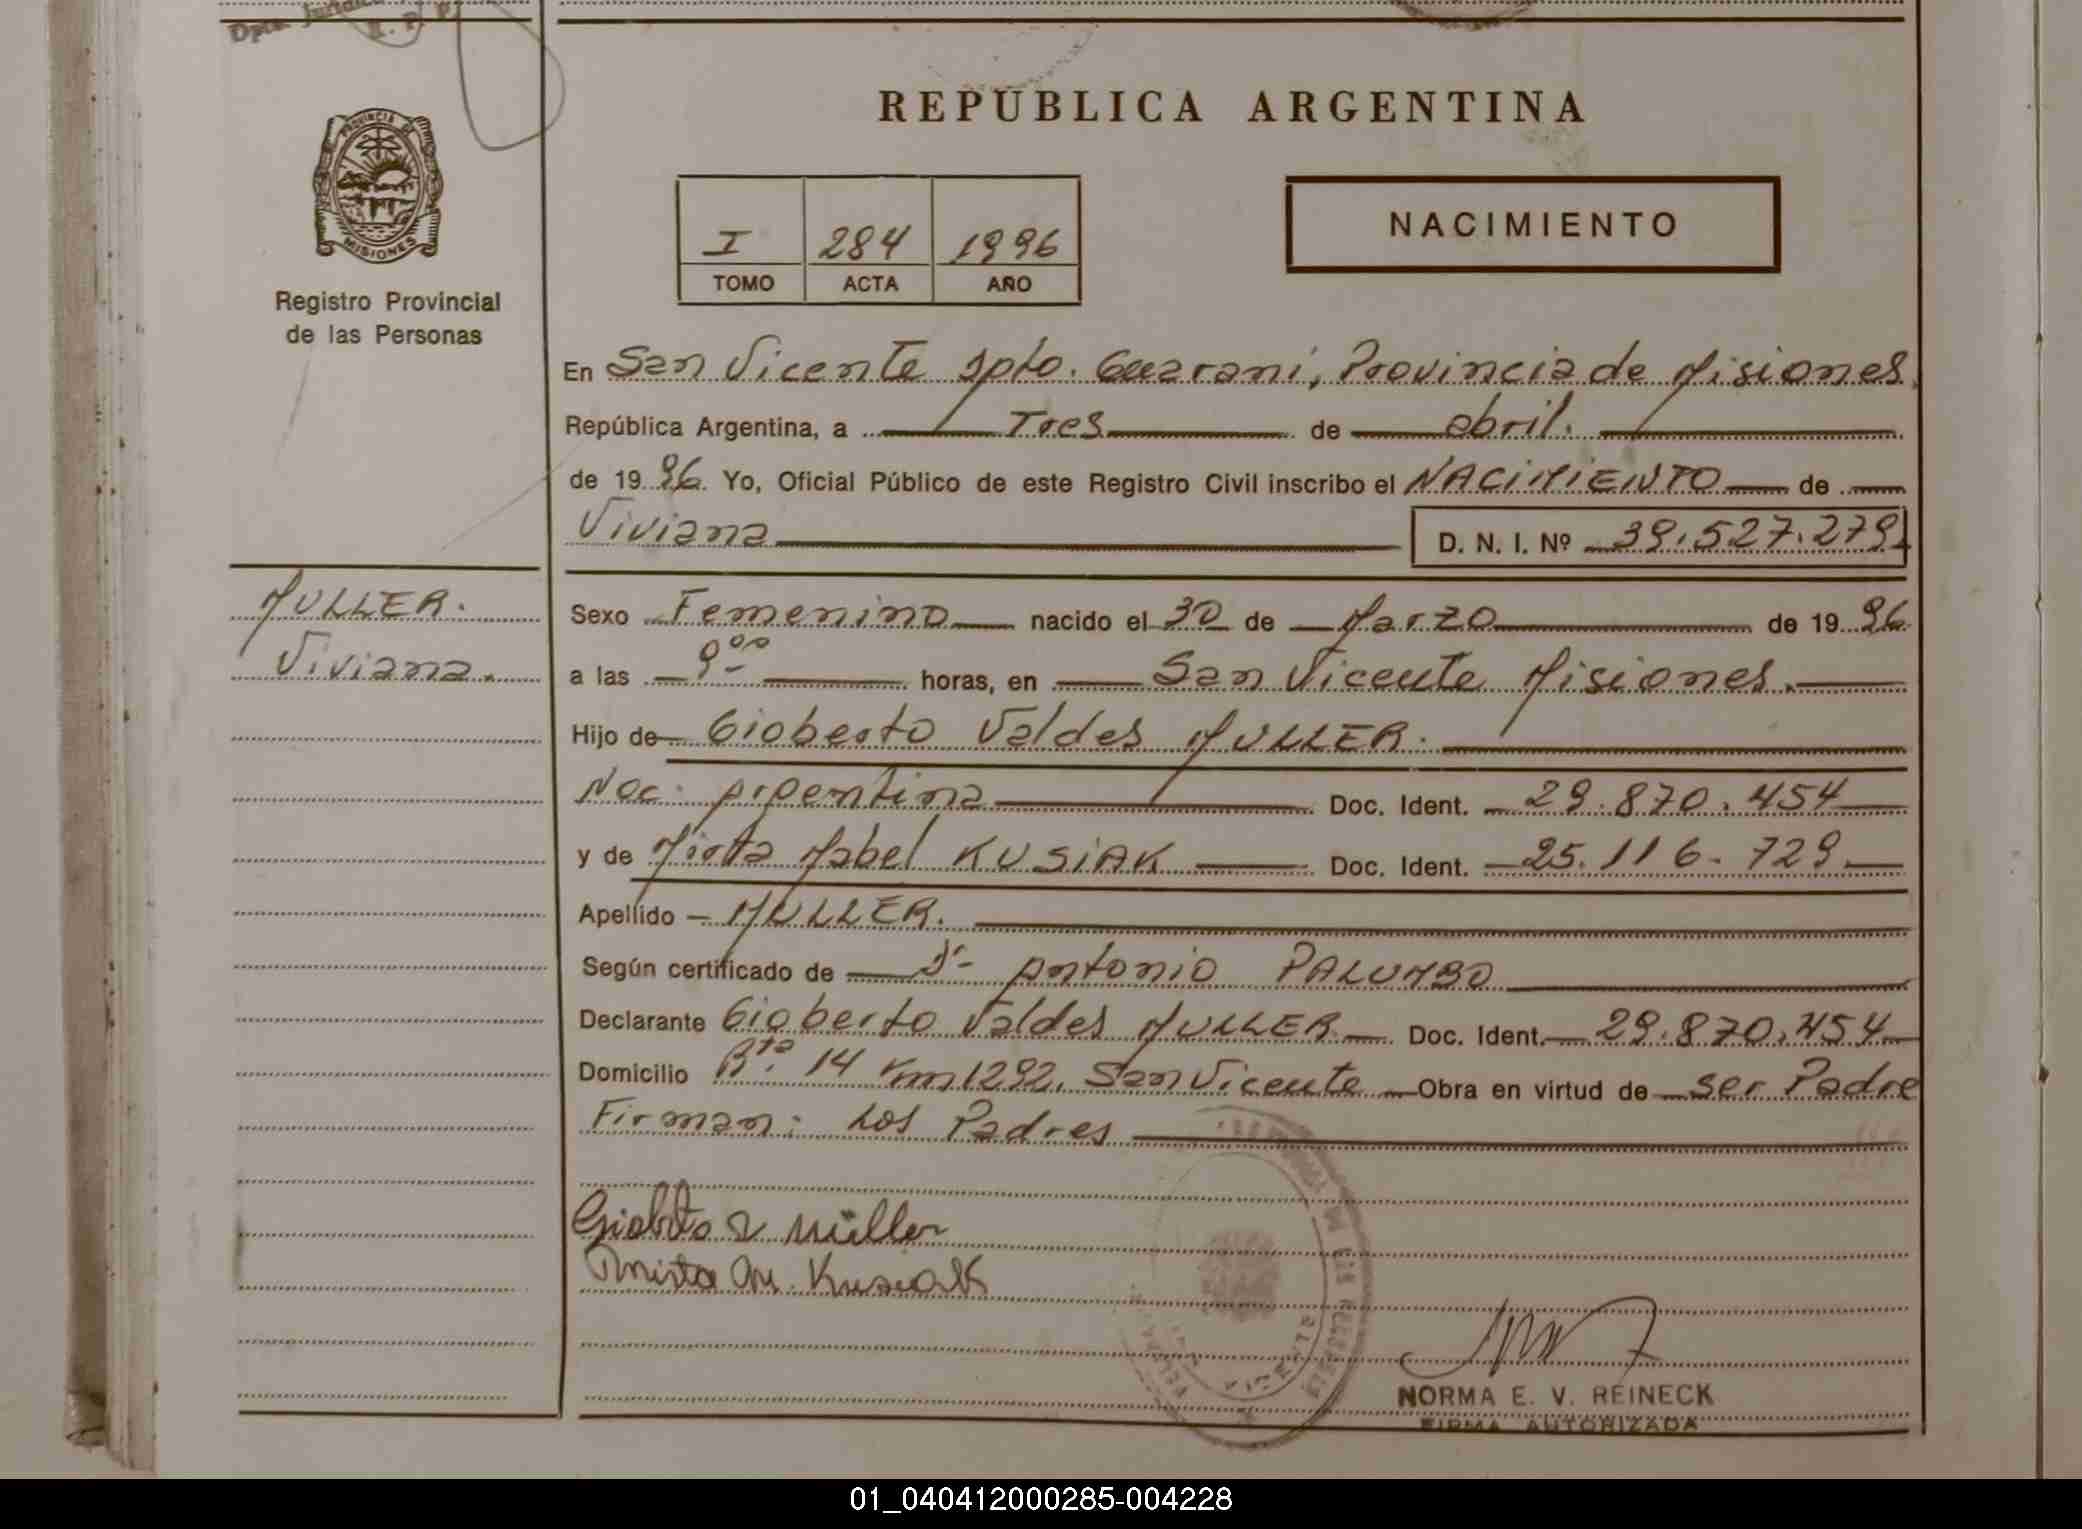 Dpto. Jurídico
R. P. P.
PROVINCIA DE
MISIONES
Registro Provincial
de las Personas
MULLER.
Viviana.
REPUBLICA ARGENTINA
I 284 1996
TOMO ACTA AÑO
NACIMIENTO
En San Vicente Dpto. Guaraní, Provincia de Misiones
República Argentina, a Tres de abril.
de 1996. Yo, Oficial Público de este Registro Civil inscribo el NACIMIENTO de
Viviana D. N. I. Nº 39.527.279
Sexo Femenino nacido el 30 de Marzo de 1996
a las 9 00 horas, en San Vicente Misiones.
Hijo de Gioberto Valdes MULLER.
Nac. Argentina Doc. Ident. 29.870.454
y de Mirta Mabel KUSIAK Doc. Ident. 25.116.729
Apellido MULLER.
Según certificado de Dr Antonio PALUMBO
Declarante Gioberto Valdes MULLER Doc. Ident. 29.870.454
Domicilio Rta. 14 Km 1292. San Vicente Obra en virtud de ser Padre
Firman: Los Padres
Gioberto V Müller
Mirta M. Kusiak
NORMA E. V. REINECK
FIRMA AUTORIZADA
01_040412000285-004228